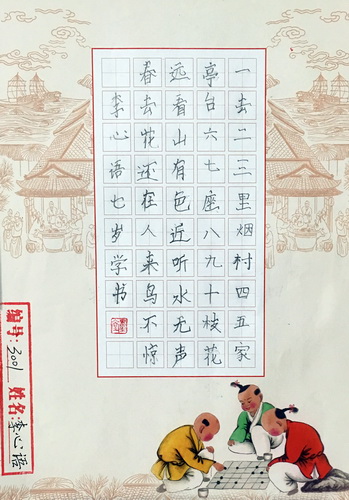 一去二三里烟村四五家
亭台六七座八九十枝花
远看山有色近听水无声
春去花还在人来鸟不惊
李心语七岁学书
编号:3001 姓名:李心语